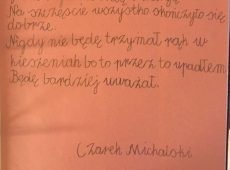 Na szczęście wszystko skończyło się
dobrze.
Nigdy nie będę trzymał rąk w
kieszeniah bo to przez to upadłem
Będę bardziej uważał.
Czarek Michalski